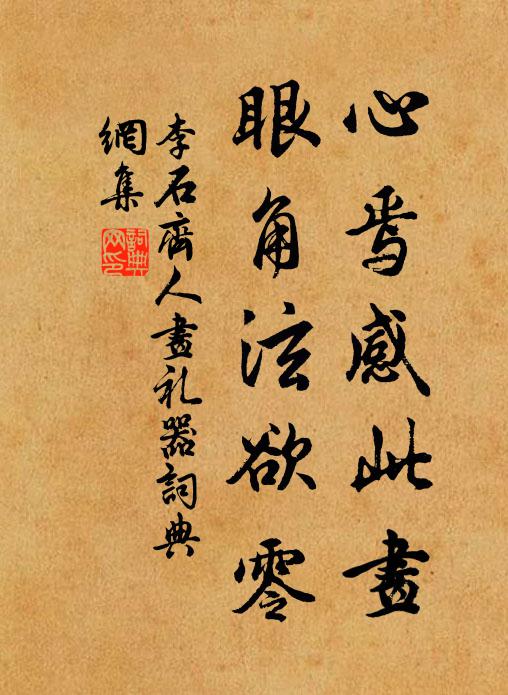 心焉感此畫
眼角泫欲零
李石齊人畫礼器詞典
網集
詞典網印